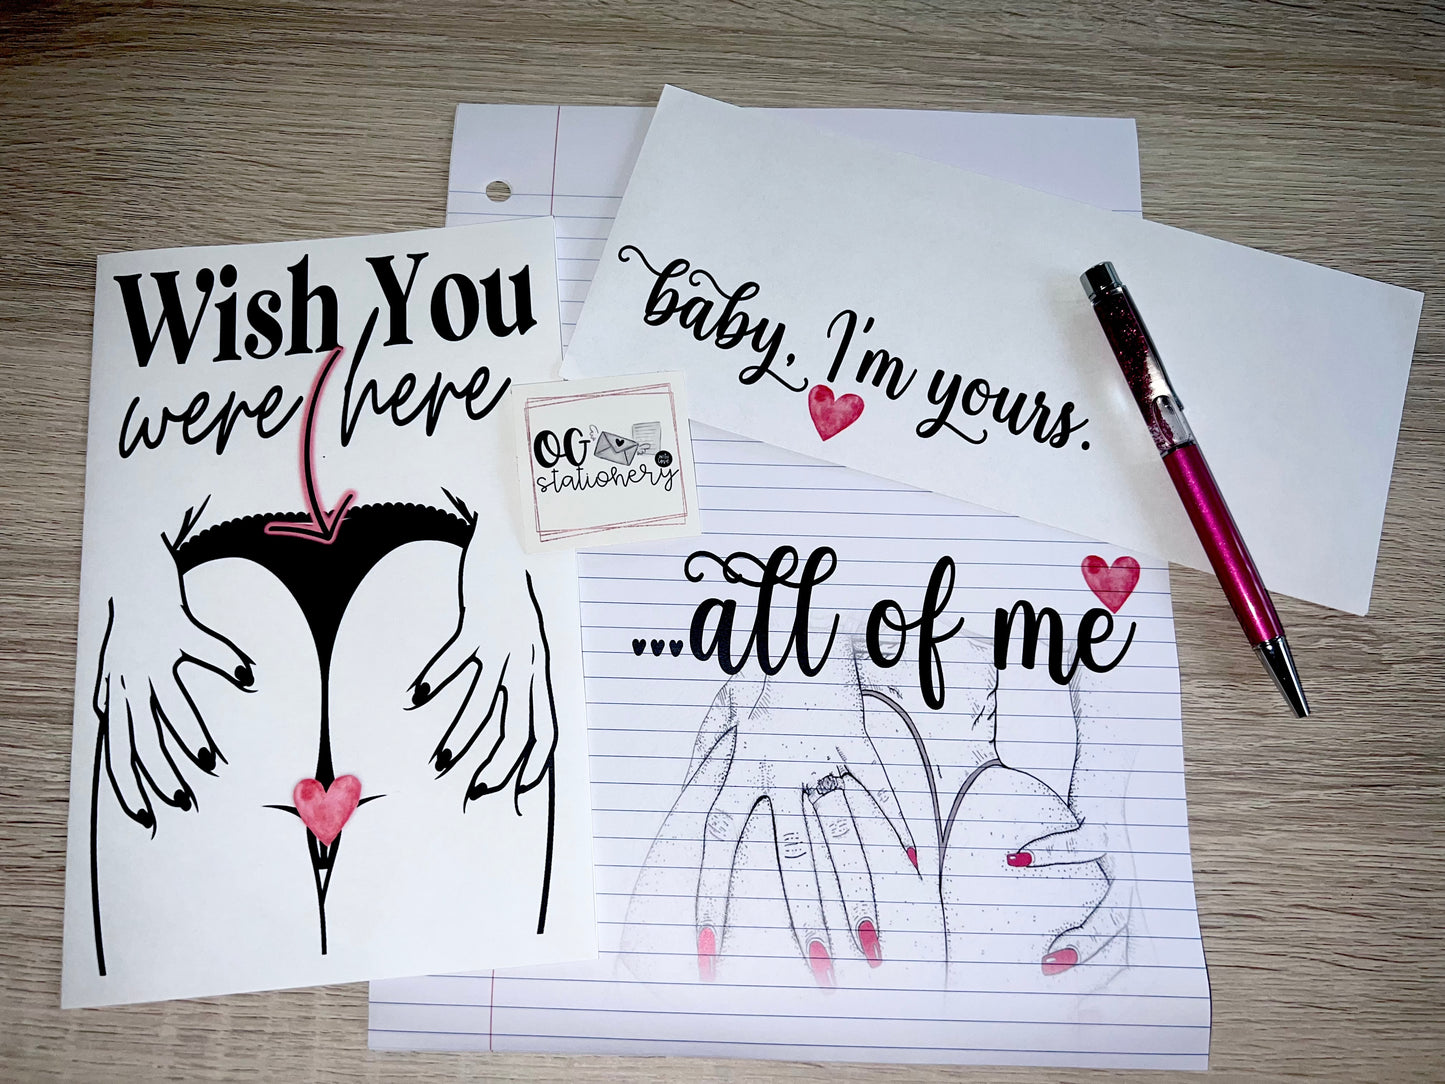 Wish You
were here
baby, I'm yours.
OG
stationery
...all of me